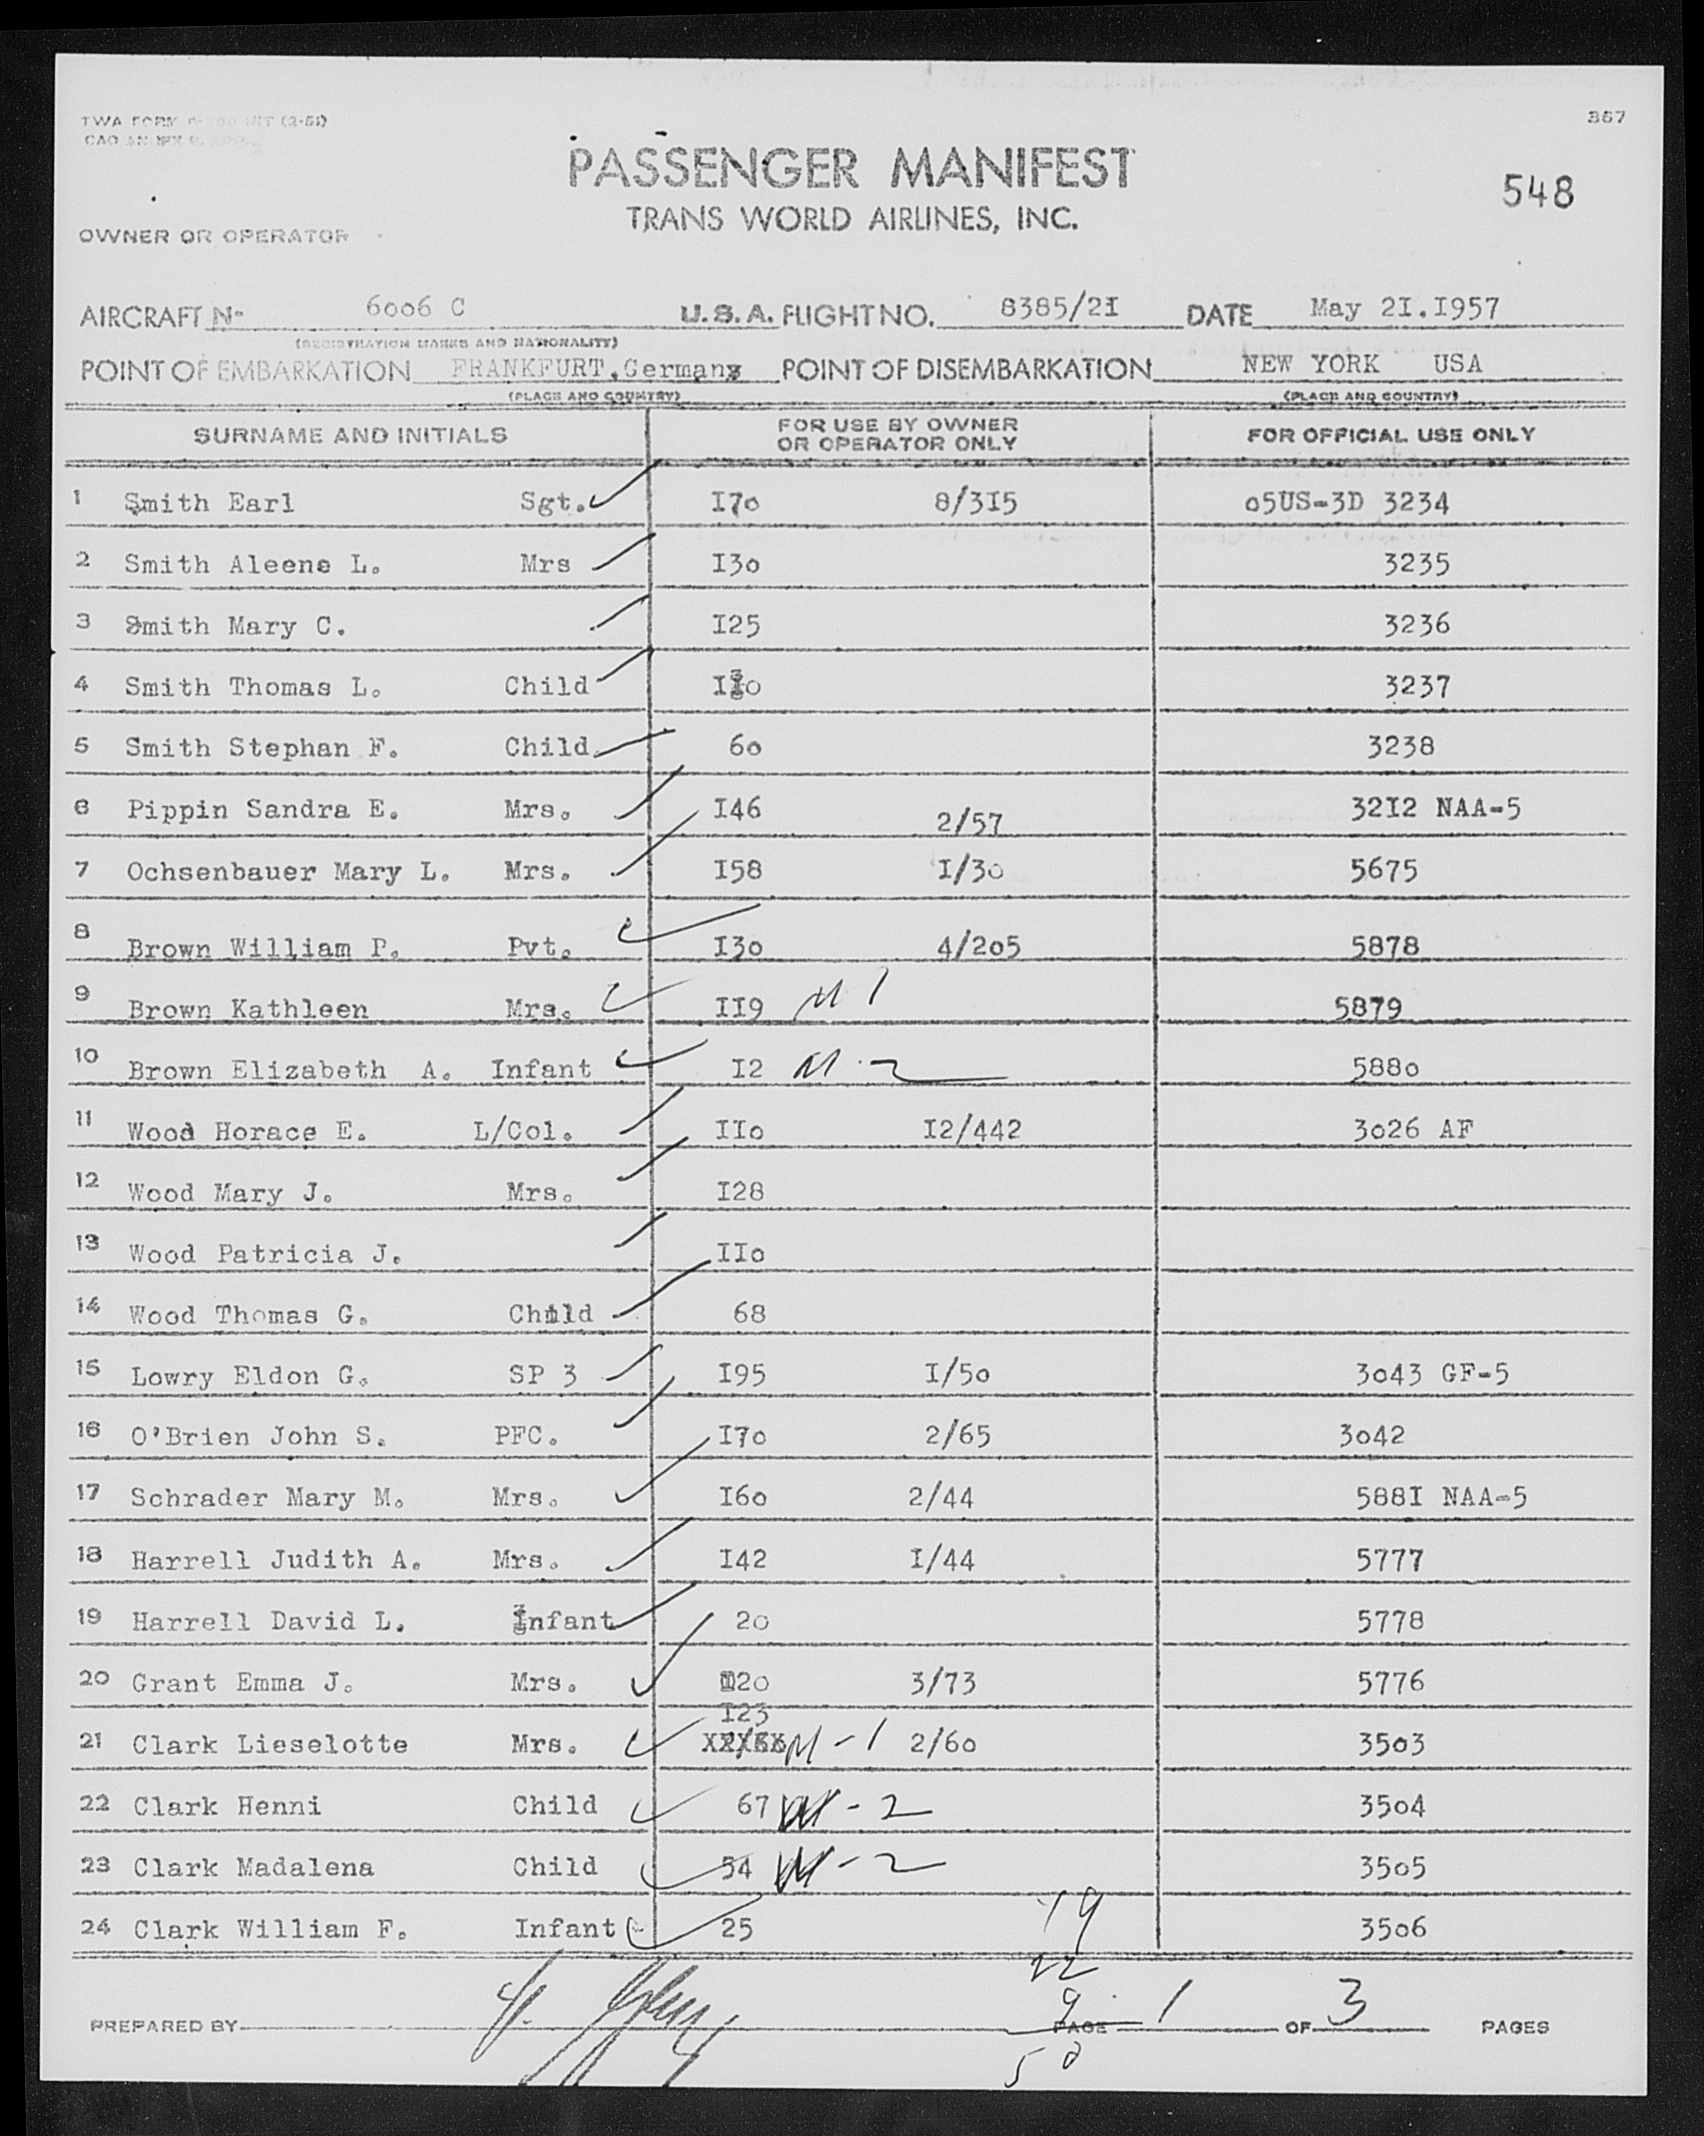 TWA FORM
367
PASSENGER MANIFEST
548
TRANS WORLD AIRLINES, INC.
OWNER OR OPERATOR
AIRCRAFT No 6006 C U.S.A. FLIGHT NO. 8385/2I DATE May 2I.I957
(REGISTRATION MARKS AND NATIONALITY)
POINT OF EMBARKATION FRANKFURT,Germany POINT OF DISEMBARKATION NEW YORK USA
(PLACE AND COUNTRY) (PLACE AND COUNTRY)
SURNAME AND INITIALS FOR USE BY OWNER OR OPERATOR ONLY FOR OFFICIAL USE ONLY
1 Smith Earl Sgt. I7o 8/3I5 o5US-3D 3234
2 Smith Aleene L. Mrs I3o 3235
3 Smith Mary C. I25 3236
4 Smith Thomas L. Child 3237
5 Smith Stephan F. Child 6o 3238
6 Pippin Sandra E. Mrs. I46 2/57 32I2 NAA-5
7 Ochsenbauer Mary L. Mrs. I58 I/3o 5675
8 Brown William P. Pvt. I3o 4/2o5 5878
9 Brown Kathleen Mrs. II9 M 1 5879
10 Brown Elizabeth A. Infant I2 M - 2 588o
11 Wood Horace E. L/Col. IIo I2/442 3o26 AF
12 Wood Mary J. Mrs. I28
13 Wood Patricia J. IIo
14 Wood Thomas G. Child 68
15 Lowry Eldon G. SP 3 I95 I/5o 3o43 GF-5
16 O'Brien John S. PFC. I7o 2/65 3o42
17 Schrader Mary M. Mrs. I6o 2/44 588I NAA-5
18 Harrell Judith A. Mrs. I42 I/44 5777
19 Harrell David L. Infant 2o 5778
20 Grant Emma J. Mrs. I2o 3/73 5776
I23
21 Clark Lieselotte Mrs. M - 1 2/6o 35o3
22 Clark Henni Child 67 M - 2 35o4
23 Clark Madalena Child 54 M - 2 35o5
24 Clark William F. Infant 25 35o6
19
22
9
PREPARED BY PAGE 1 OF 3 PAGES
50